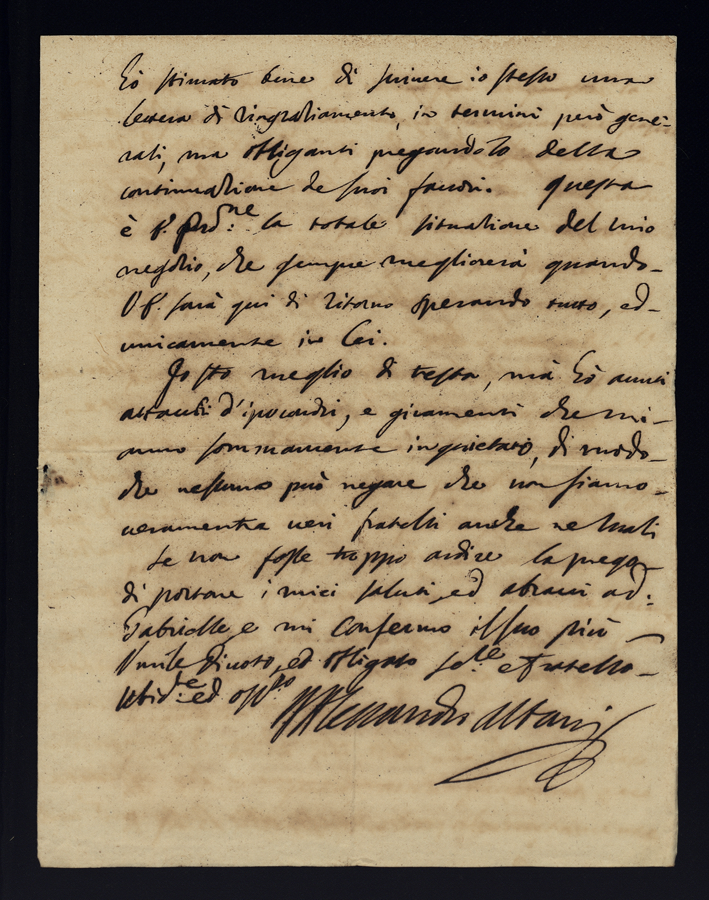 Hò stimato bene di scrivere io stesso una
lettera di ringraziamento, in termini però gene-
rali, ma obbliganti pregandolo della
continuazione de suoi favori. questa
è la totale situazione del mio
negozio, che sempre megliorerà quando-
V.S. sarà qui di ritorno sperando tutto, ed-
unicamente in Lei.
Io stò meglio di testa, mà hò avuti
attacchi d'ipocondri, e giramenti che mi-
anno sommamente inquietato, di modo-
che nessuno può negare che non siamo-
veri fratelli anche ne mali
Se non fosse troppo ardire la prego
di portare i miei saluti, ed abracci ad:
Gabrielle, e mi confermo il suo più
Umile Divoto, ed obligato e Fratello-
ed
Alessandro